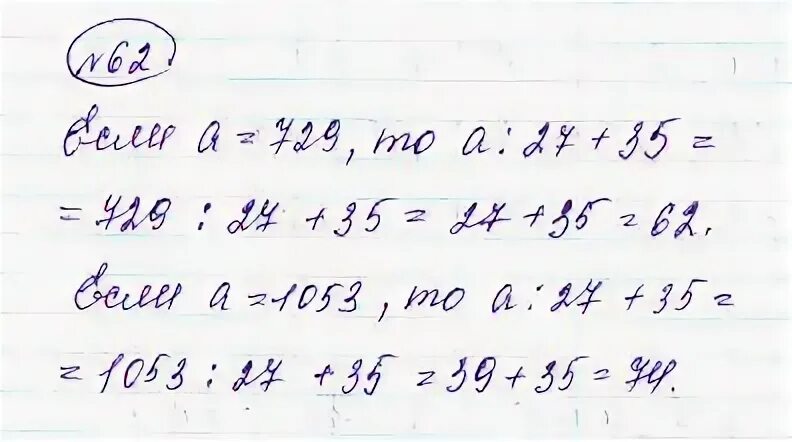 №62
Если а = 729, то а : 27 + 35 =
= 729 : 27 + 35 = 27 + 35 = 62.
Если а = 1053, то а : 27 + 35 =
= 1053 : 27 + 35 = 39 + 35 = 74.